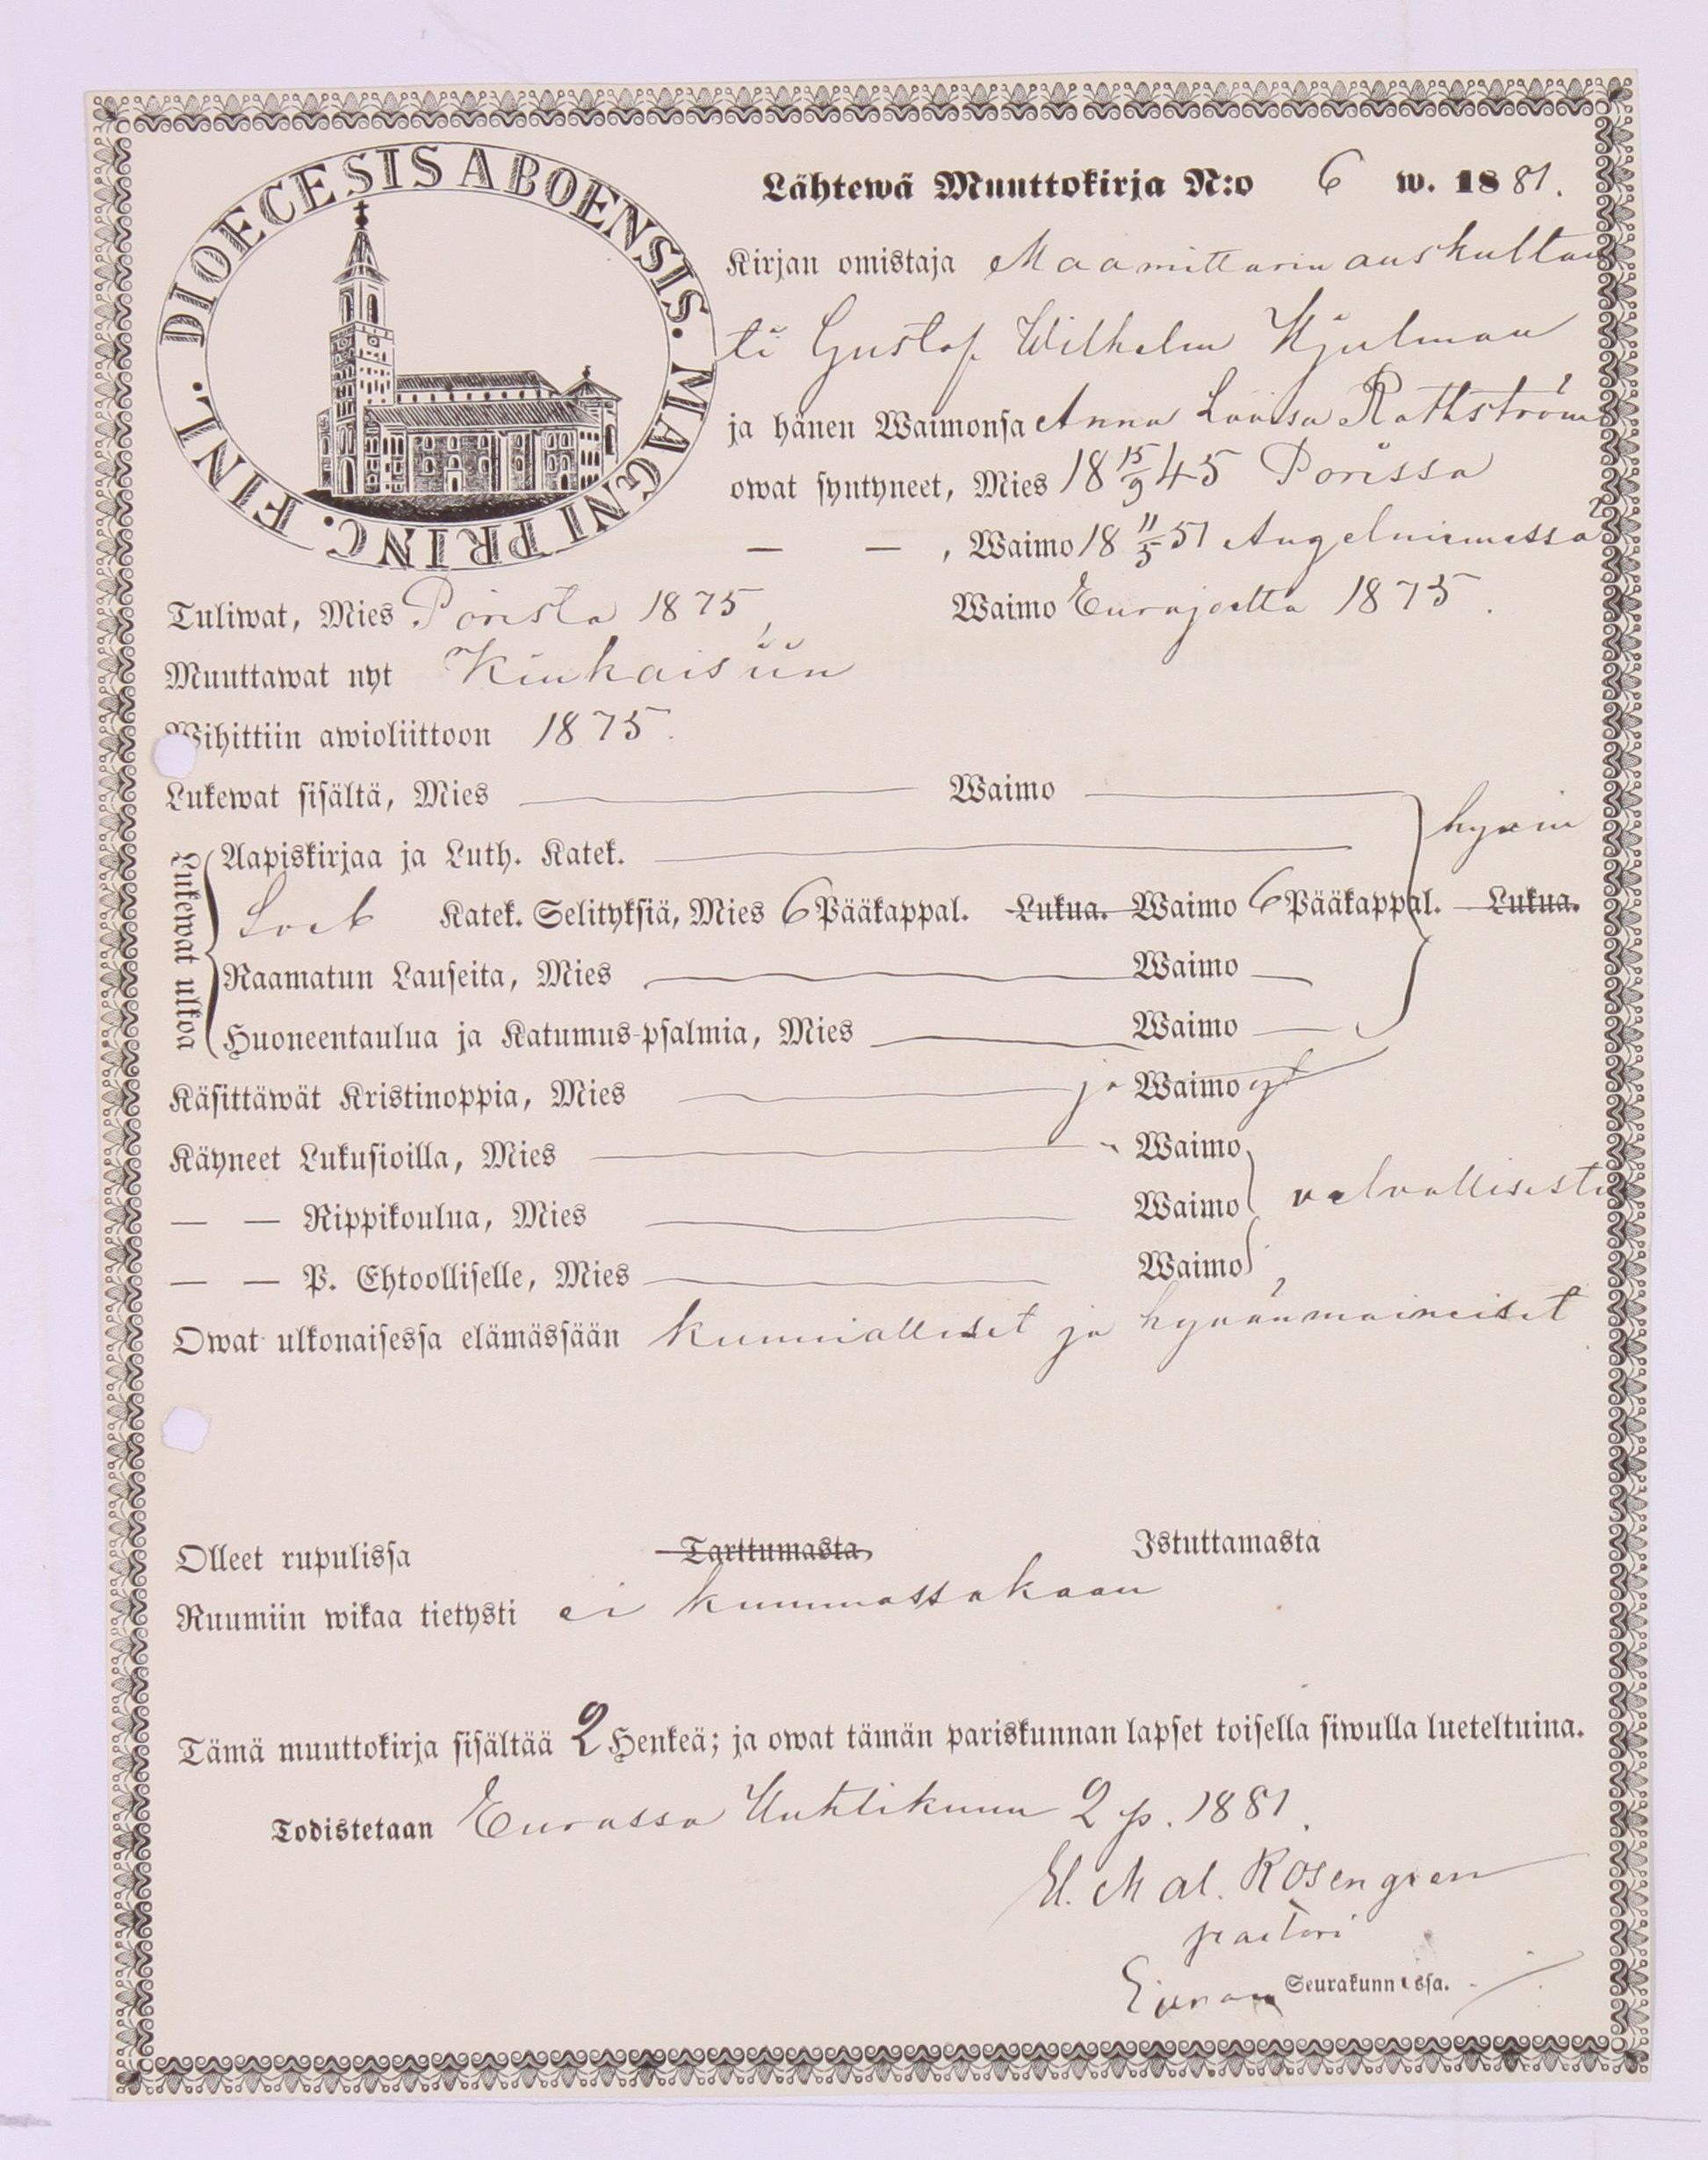 DIOECESIS ABOENSIS. MAGNI PRINC. FINL.
Lähtewä Muuttokirja N:o 6 w. 1881.
Kirjan omistaja Maamittarin auskultan
ti Gustaf Wilhelm Hjulman
ja hänen Waimonsa Anna Lovisa Rothström
owat syntyneet, Mies 18 15/9 45 Porissa
— — , Waimo 18 11/5 51 Angelniemessä
Tuliwat, Mies Porista 1875, Waimo Eurajoelta 1875.
Muuttawat nyt Kiukaisiin
Wihittiin awioliittoon 1875.
Lukewat sisältä, Mies — Waimo — hyvin
Lukewat ulkoa
Aapiskirjaa ja Luth. Katek. —
Katek. Selityksiä, Mies 6 Pääkappal. Lukua. Waimo 6 Pääkappal. Lukua.
Raamatun Lauseita, Mies — Waimo —
Huoneentaulua ja Katumus-psalmia, Mies — Waimo —
Käsittäwät Kristinoppia, Mies — ja Waimo
Käyneet Lukusioilla, Mies — Waimo
— — Rippikoulua, Mies — Waimo
— — P. Ehtoolliselle, Mies — Waimo
Owat ulkonaisessa elämässään kunnialliset ja hyvänmaineiset
Olleet rupulissa Tarttumasta Istuttamasta
Ruumiin wikaa tietysti ei kummassakaan
Tämä muuttokirja sisältää 2 Henkeä; ja owat tämän pariskunnan lapset toisella siwulla lueteltuina.
Todistetaan Eurassa Huhtikuun 2 p. 1881.
Rosengren
pastori
Euran Seurakunnassa.